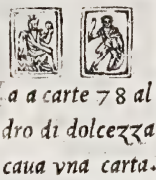 a a carte 78 al
dro di dolcezza
caua vna carta.